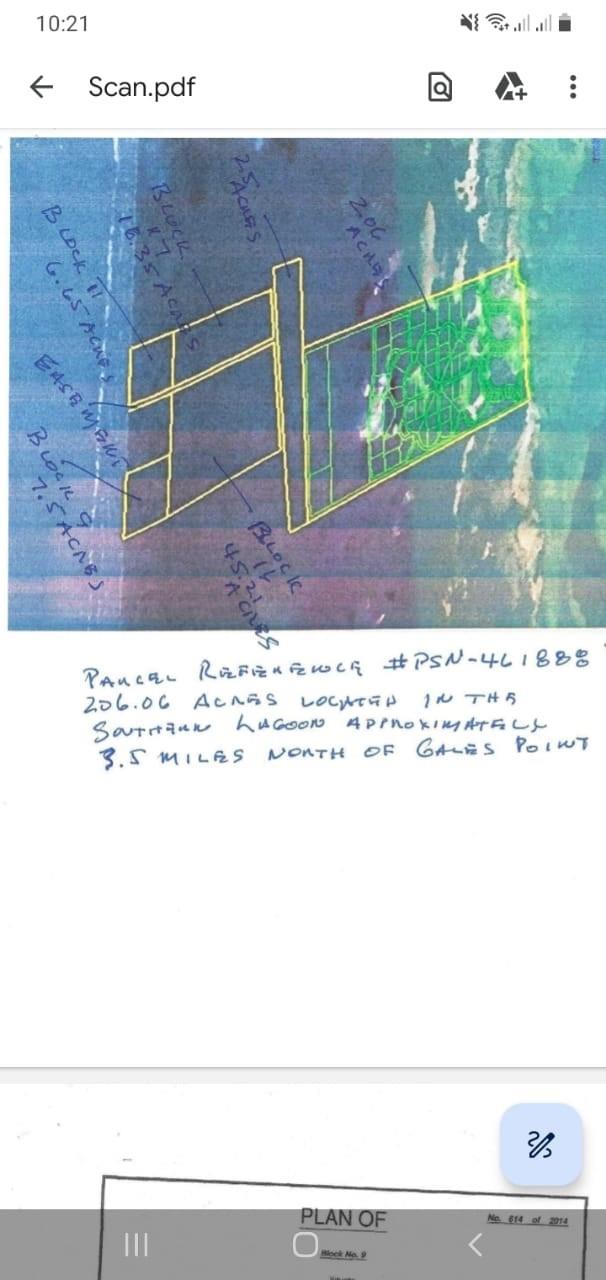 10:21
Scan.pdf
25
ACRES
206
ACRES
BLOCK
18.35 ACRES
BLOCK 11
6.65 ACRES
EASEMENT
BLOCK 9
7.5 ACRES
BLOCK
45.21
ACRES
PARCEL REFERENCE #PSN-461888
206.06 ACRES LOCATED IN THE
SOUTHERN LAGOON APPROXIMATELY
3.5 MILES NORTH OF GALES POINT
PLAN OF
No. 614 of 2014
Block No. 9